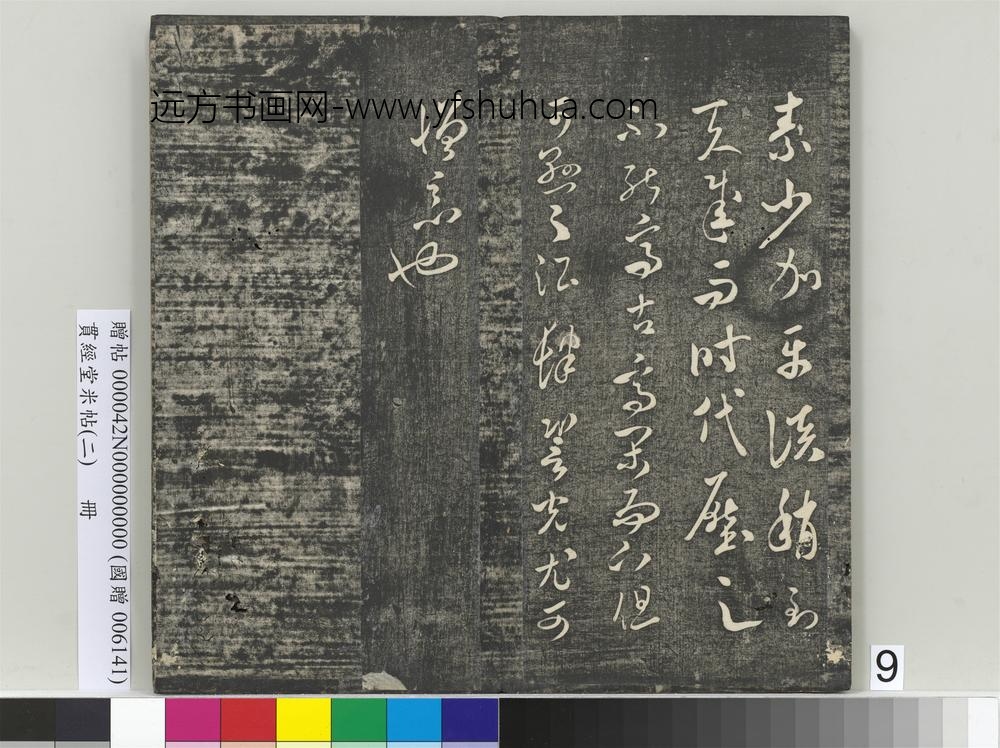 远方书画网-www.yfshuhua.com
素少加平淡稍到
天成而时代壓之
不能高古高閑而下但
可懸之酒肆䛒光尤可
憎惡也
贈帖 000042N000000000 (國贈 006141)
貫經堂米帖(二) 冊
9